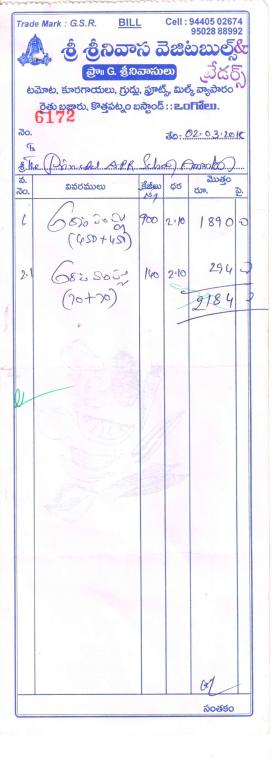 Trade Mark : G.S.R. BILL Cell : 94405 02674
95028 88992
శ్రీ శ్రీనివాస వెజిటబుల్స్ &
ప్రొ॥ G. శ్రీనివాసులు ట్రేడర్స్
టమోట, కూరగాయలు, గ్రుడ్లు, ఫ్రూట్స్, మిల్క్ వ్యాపారం
రైతు బజారు, కొత్తపట్నం బస్టాండ్ :: ఒంగోలు.
నెం. 6172 తేది: 02-03-2018
శ్రీ The Principal A.P.R. School
వ. నెం. వివరములు కేజీలు ధర మొత్తం
రూ. పై.
1 900 2.10 1890 0
(450 + 450)
2. 140 2.10 294 0
(70+70)
2184 0
సంతకం